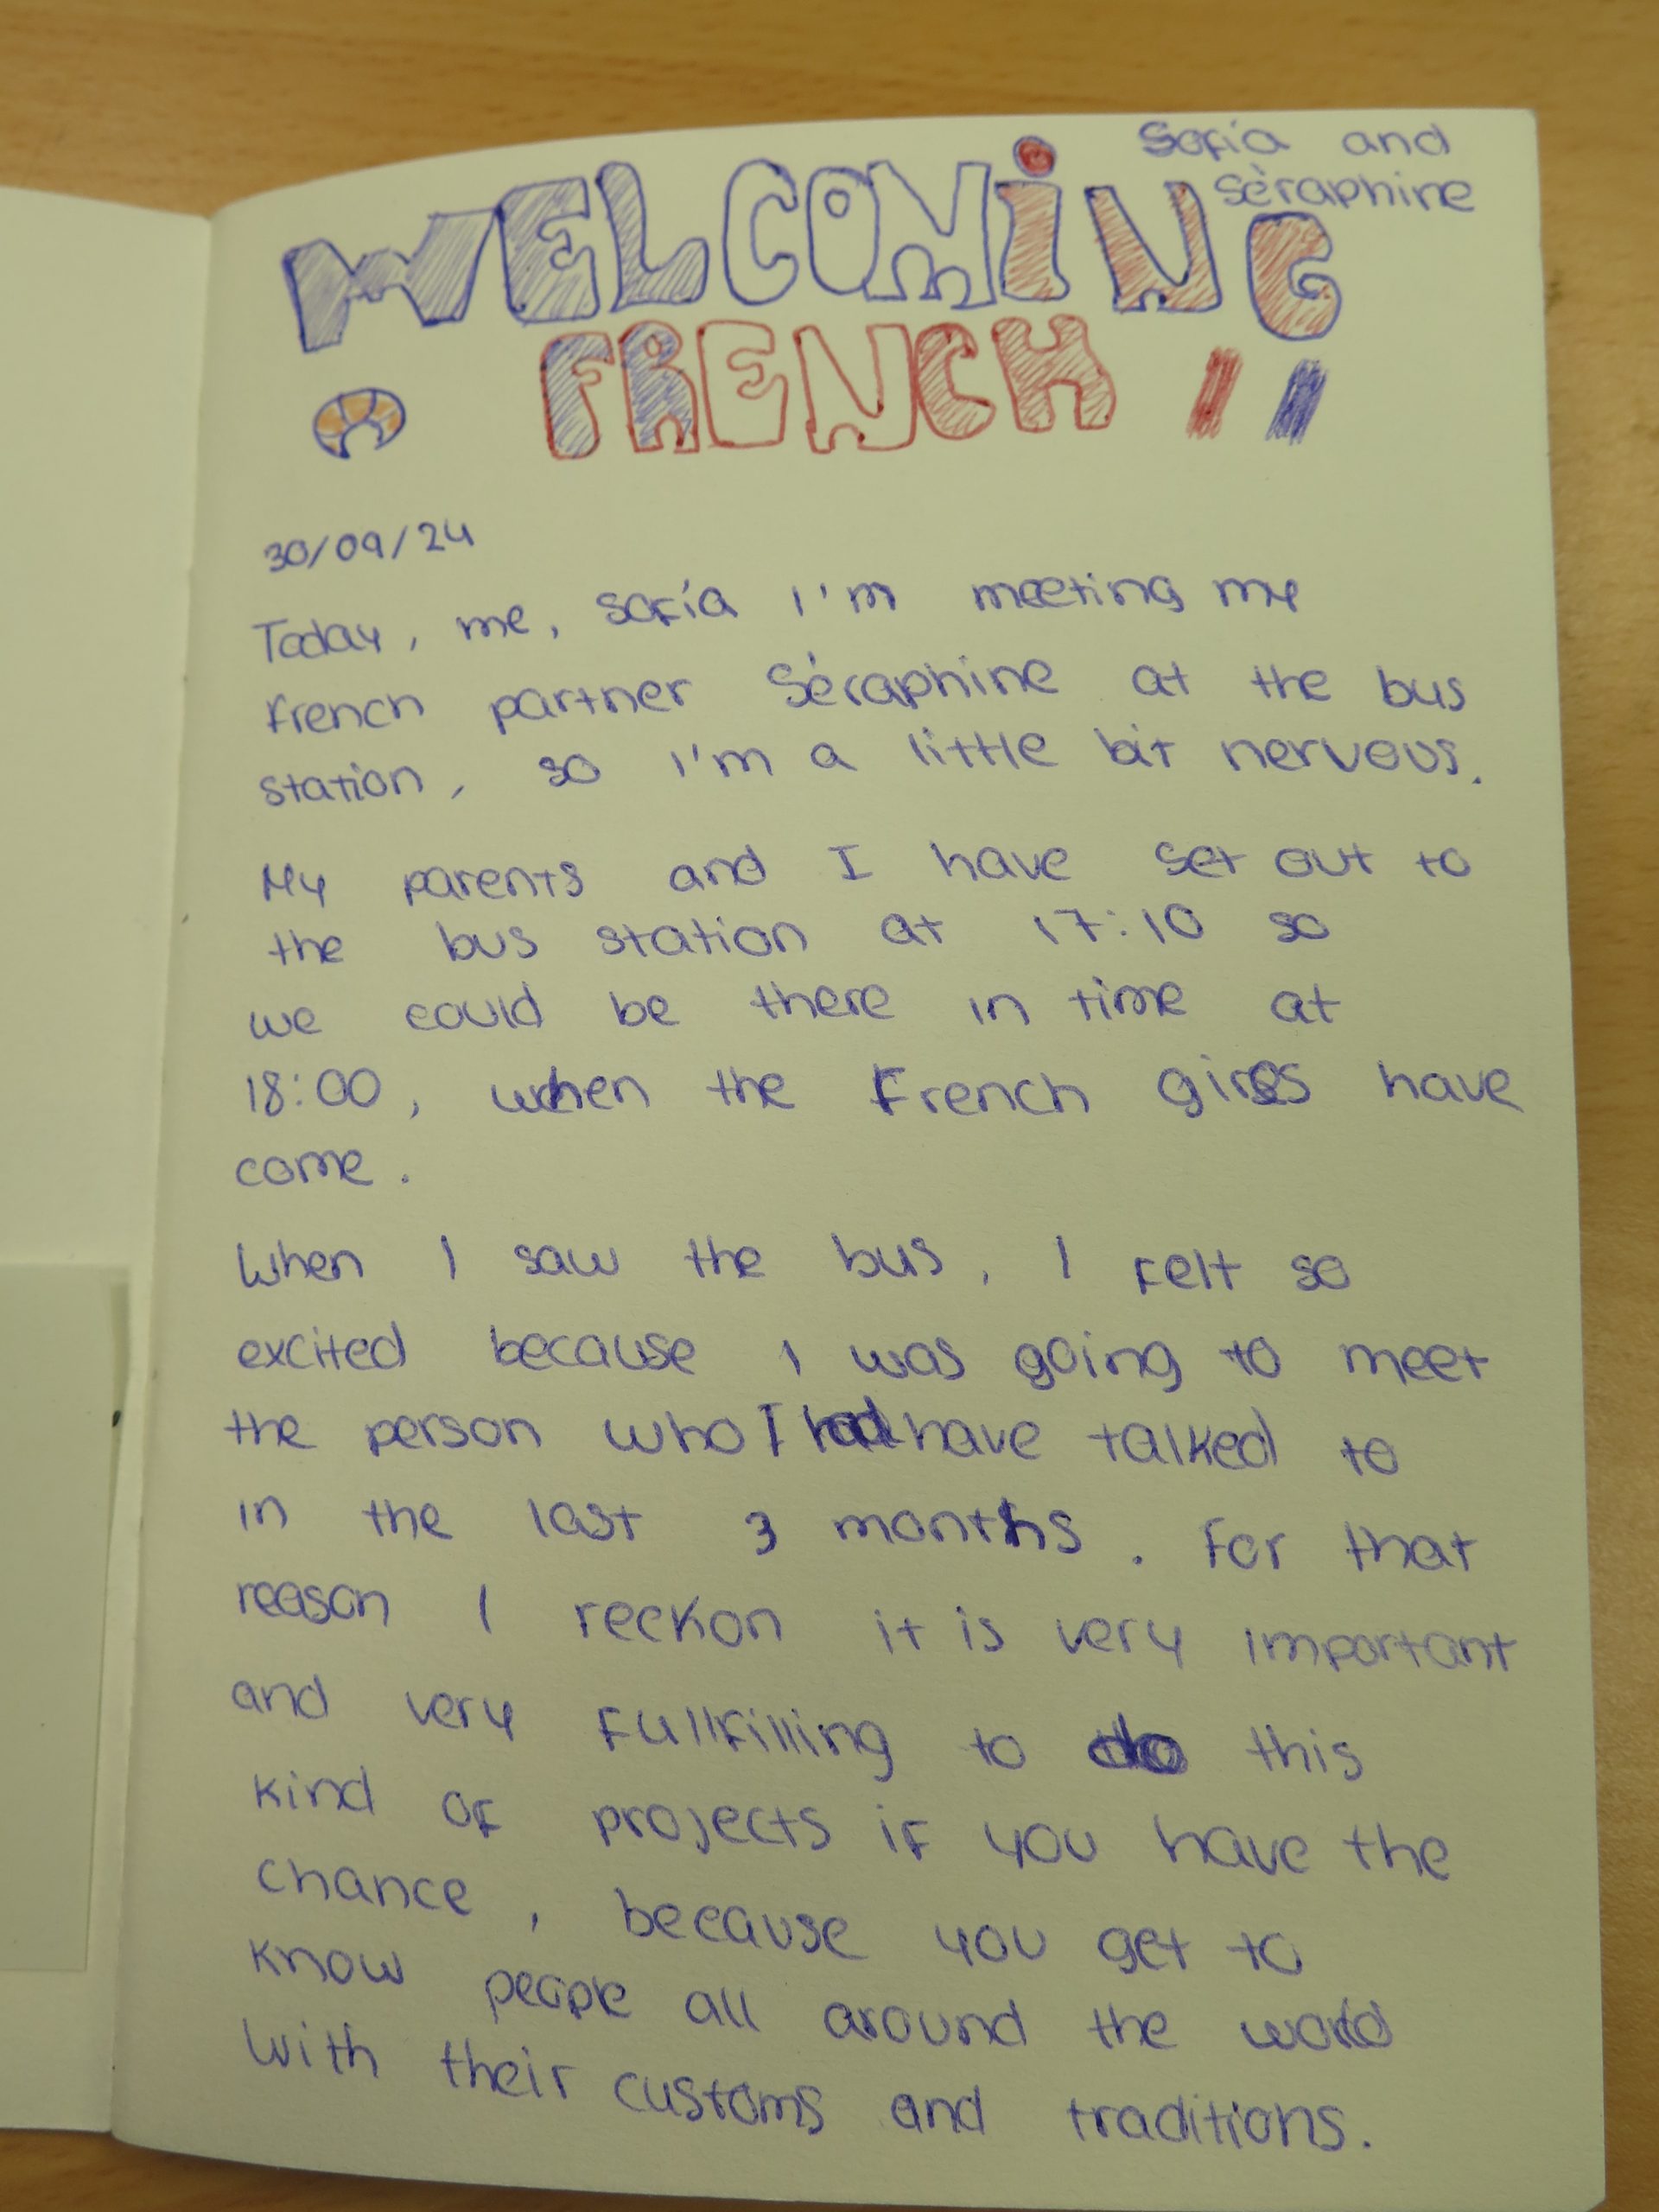 Sofía and
Sèraphine
WELCOMiNG
FRENCH
30/09/24
Today, me, Sofía I'm meeting my
French partner Séraphine at the bus
station, so I'm a little bit nervous.
My parents and I have set out to
the bus station at 17:10 so
we could be there in time at
18:00, when the French girls have
come.
When I saw the bus, I felt so
excited because I was going to meet
the person who I have talked to
in the last 3 months. For that
reason I reckon it is very important
and very fullfilling to do this
kind of projects if you have the
chance, because you get to
know people all around the world
with their customs and traditions.